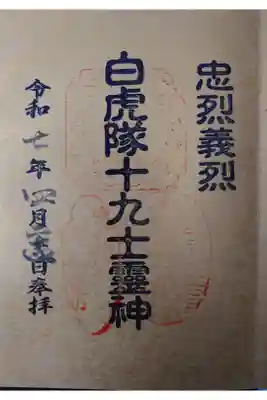 忠烈義烈
白虎隊十九士霊神
令和七年四月 日奉拝